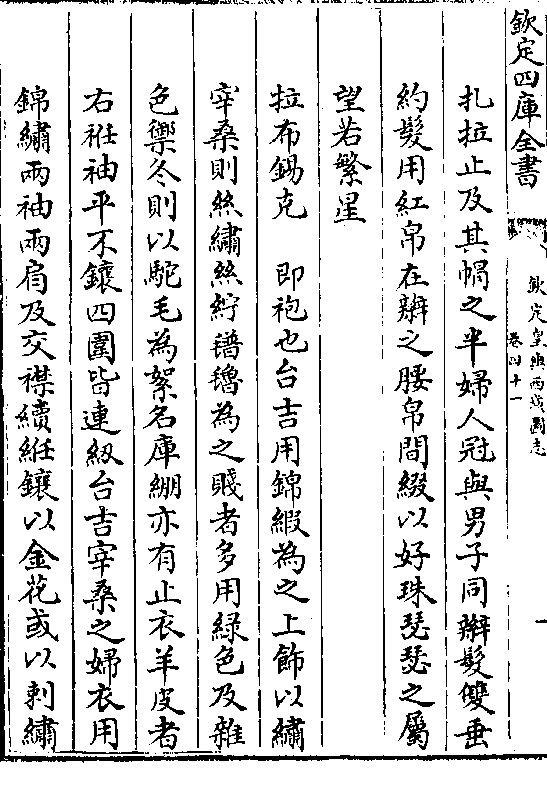 欽定四庫全書
欽定皇輿西域圖志
卷四十一
一
扎拉止及其㡌之半婦人冠與男子同辮髮雙垂
約髮用紅帛在辮之腰帛間綴以好珠瑟瑟之屬
望若繁星
拉布錫克　即袍也台吉用錦緞為之上飾以繡
宰桑則絲繡絲紵氆氌為之賤者多用綠色及雜
色禦冬則以駝毛為絮名庫綳亦有止衣羊皮者
右袵袖平不鑲四圍皆連紉台吉宰桑之婦衣用
錦繡兩袖兩肩及交襟續絍鑲以金花或以刺繡